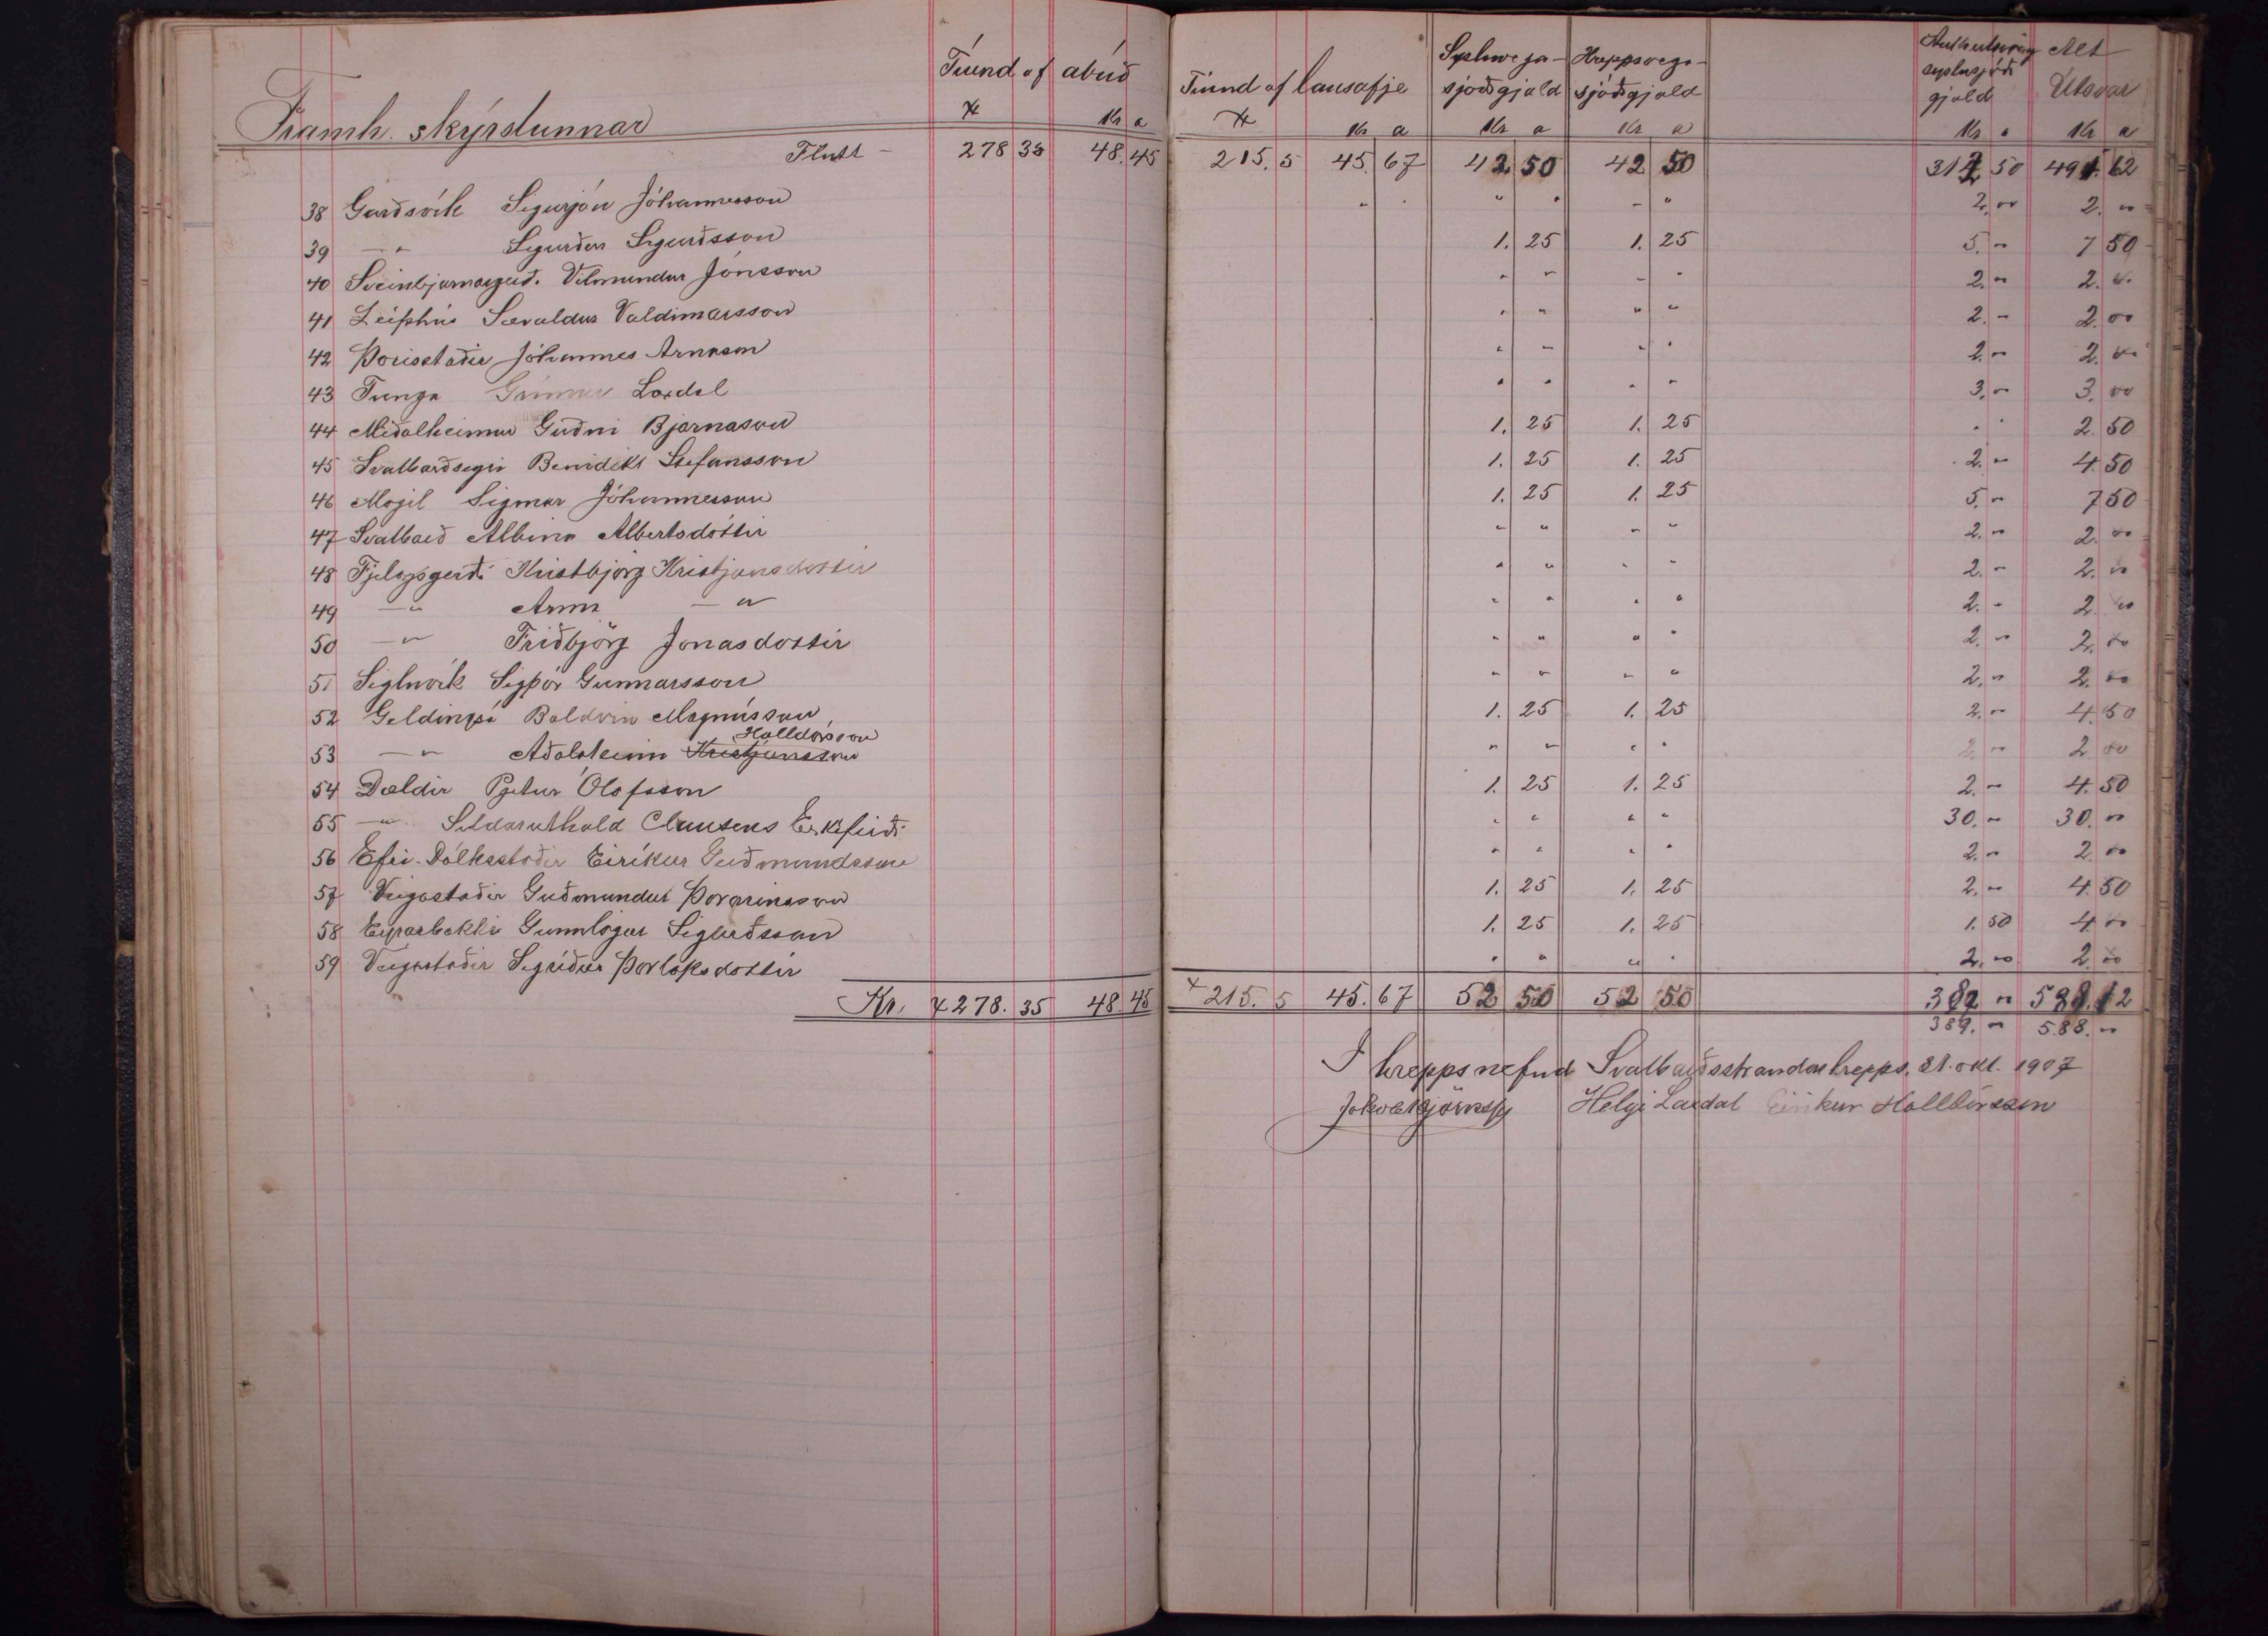 Tíund af ábúð
Tíund af lausafje
Sysluvega-
sjóðsgjald
Hreppsvega-
sjóðsgjald
Aukautsvar og
syslusjóðs
gjald
Alt
Útsvar
Framh. skýrslunnar
Kr a Kr a Kr a Kr a Kr a Kr a
Flutt - 278 35 48.45 215.5 45.67 42 50 42 50 312 50 491.62
38 Garðsvík Sigurjón Jóhannesson " " " " " " 2,00 2. "
39 - " Sigurður Sigurðsson 1. 25 1. 25 5. " 7 50
40 Sveinbjarnargerð. Vilmundur Jónsson " " " " 2. " 2. 00
41 Leifshús Sævaldur Valdimarsson " " " " 2. " 2. 00
42 Þórisstaðir Jóhannes Arnason " " " " 2. " 2. 00
43 Tunga Grímur Laxdal " " " " 3. " 3. 00
44 Meðalheimur Guðni Bjarnason 1. 25 1. 25 " " 2. 50
45 Svalbarðseyri Benidikt Stefansson 1. 25 1. 25 2. " 4. 50
46 Mógil Sigmar Jóhannesson 1. 25 1. 25 5. " 7 50
47 Svalbarð Albina Albertsdóttir " " " " 2. " 2. 00
48 Fjelagsgerði Kristbjörg Kristjansdottir " " " " 2. " 2. 00
49 - " Anna - " " " " " 2. " 2. 00
50 - " Friðbjörg Jonasdottir " " " " 2. " 2. 00
51 Sigluvík Sigþór Gunnarsson " " " " 2. " 2. 00
52 Geldingsá Baldvin Magnússon 1. 25 1. 25 2. " 4. 50
Halldórsson
53 - " Aðalsteinn Kristjansson " " " " 2. " 2. 00
54 Dældir Pjetur Ólafsson 1. 25 1. 25 2. " 4. 50
55 - " Sildarúthald Clausens Eskifirði " " " " 30. " 30. "
56 Efri-Dálksstaðir Eiríkur Guðmundsson " " " " 2. " 2. 00
57 Veigastaðir Guðmundur Þorarinsson 1. 25 1. 25 2. " 4. 50
58 Eyrarbakki Gunnlögur Sigurðsson 1. 25 1. 25 1. 50 4 00
59 Veigastaðir Sigríður Þorláksdottir " " " " 2. 00 2. 00
Kr. 278. 35 48. 45 215. 5 45. 67 52 50 52 50 382 "
389. " 588. "
Í hreppsnefnd Svalbarðsstrandarhrepps, 21. okt. 1907
Helgi Laxdal Eiríkur Halldórsson